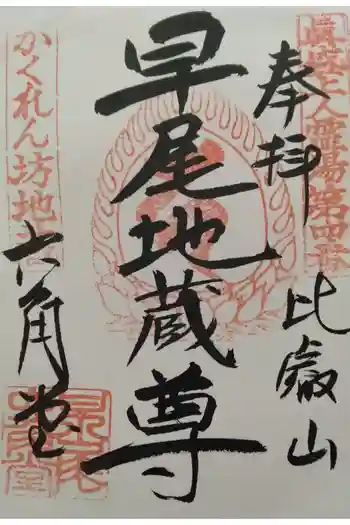 霊場第四番
奉拝
比叡山
早尾地蔵尊
かくれん坊地蔵
六角堂